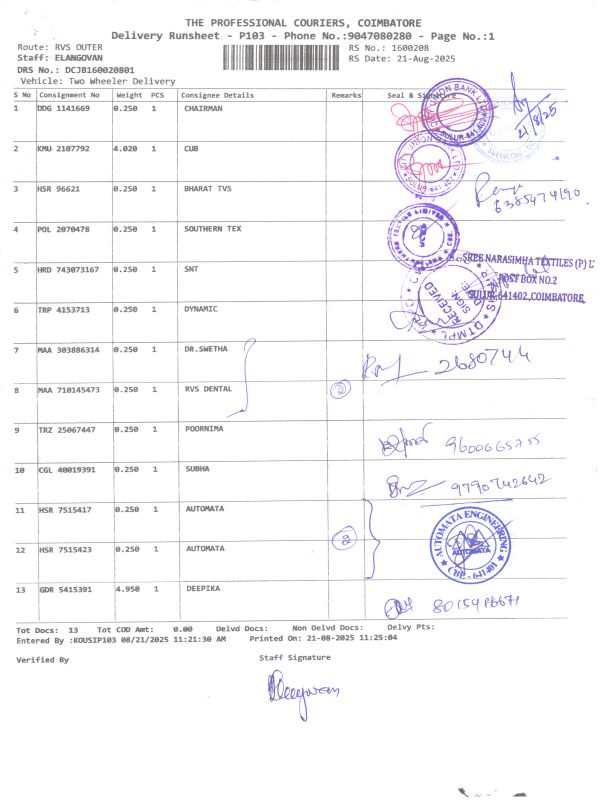 THE PROFESSIONAL COURIERS, COIMBATORE
Delivery Runsheet - P103 - Phone No.:9047080280 - Page No.:1
Route: RVS OUTER RS No.: 1600208
Staff: ELANGOVAN RS Date: 21-Aug-2025
DRS No.: DCJB160020801
Vehicle: Two Wheeler Delivery
S No Consignment No Weight PCS Consignee Details Remarks Seal & Signature
1 DDG 1141669 0.250 1 CHAIRMAN
21/8/25
2 KMU 2107792 4.020 1 CUB
3 HSR 96621 0.250 1 BHARAT TVS
6385474190
4 POL 2070478 0.250 1 SOUTHERN TEX
SREE NARASIMHA TEXTILES (P) L
POST BOX NO.2
SULUR-641402, COIMBATORE
5 HRD 743073167 0.250 1 SNT
6 TRP 4153713 0.250 1 DYNAMIC
RECEIVED
SIGN:
DTMPL
7 MAA 303886314 0.250 1 DR.SWETHA
2680744
8 MAA 710145473 0.250 1 RVS DENTAL 2
9 TRZ 25067447 0.250 1 POORNIMA
10 CGL 40019391 0.250 1 SUBHA
9790742642
11 HSR 7515417 0.250 1 AUTOMATA
12 HSR 7515423 0.250 1 AUTOMATA 2
AUTOMATA ENGINEERING
AUTOMATA
13 GDR 5415391 4.950 1 DEEPIKA
Tot Docs: 13 Tot COD Amt: 0.00 Delvd Docs: Non Delvd Docs: Delvy Pts:
Entered By :KOUSIP103 08/21/2025 11:21:30 AM Printed On: 21-08-2025 11:25:04
Verified By Staff Signature